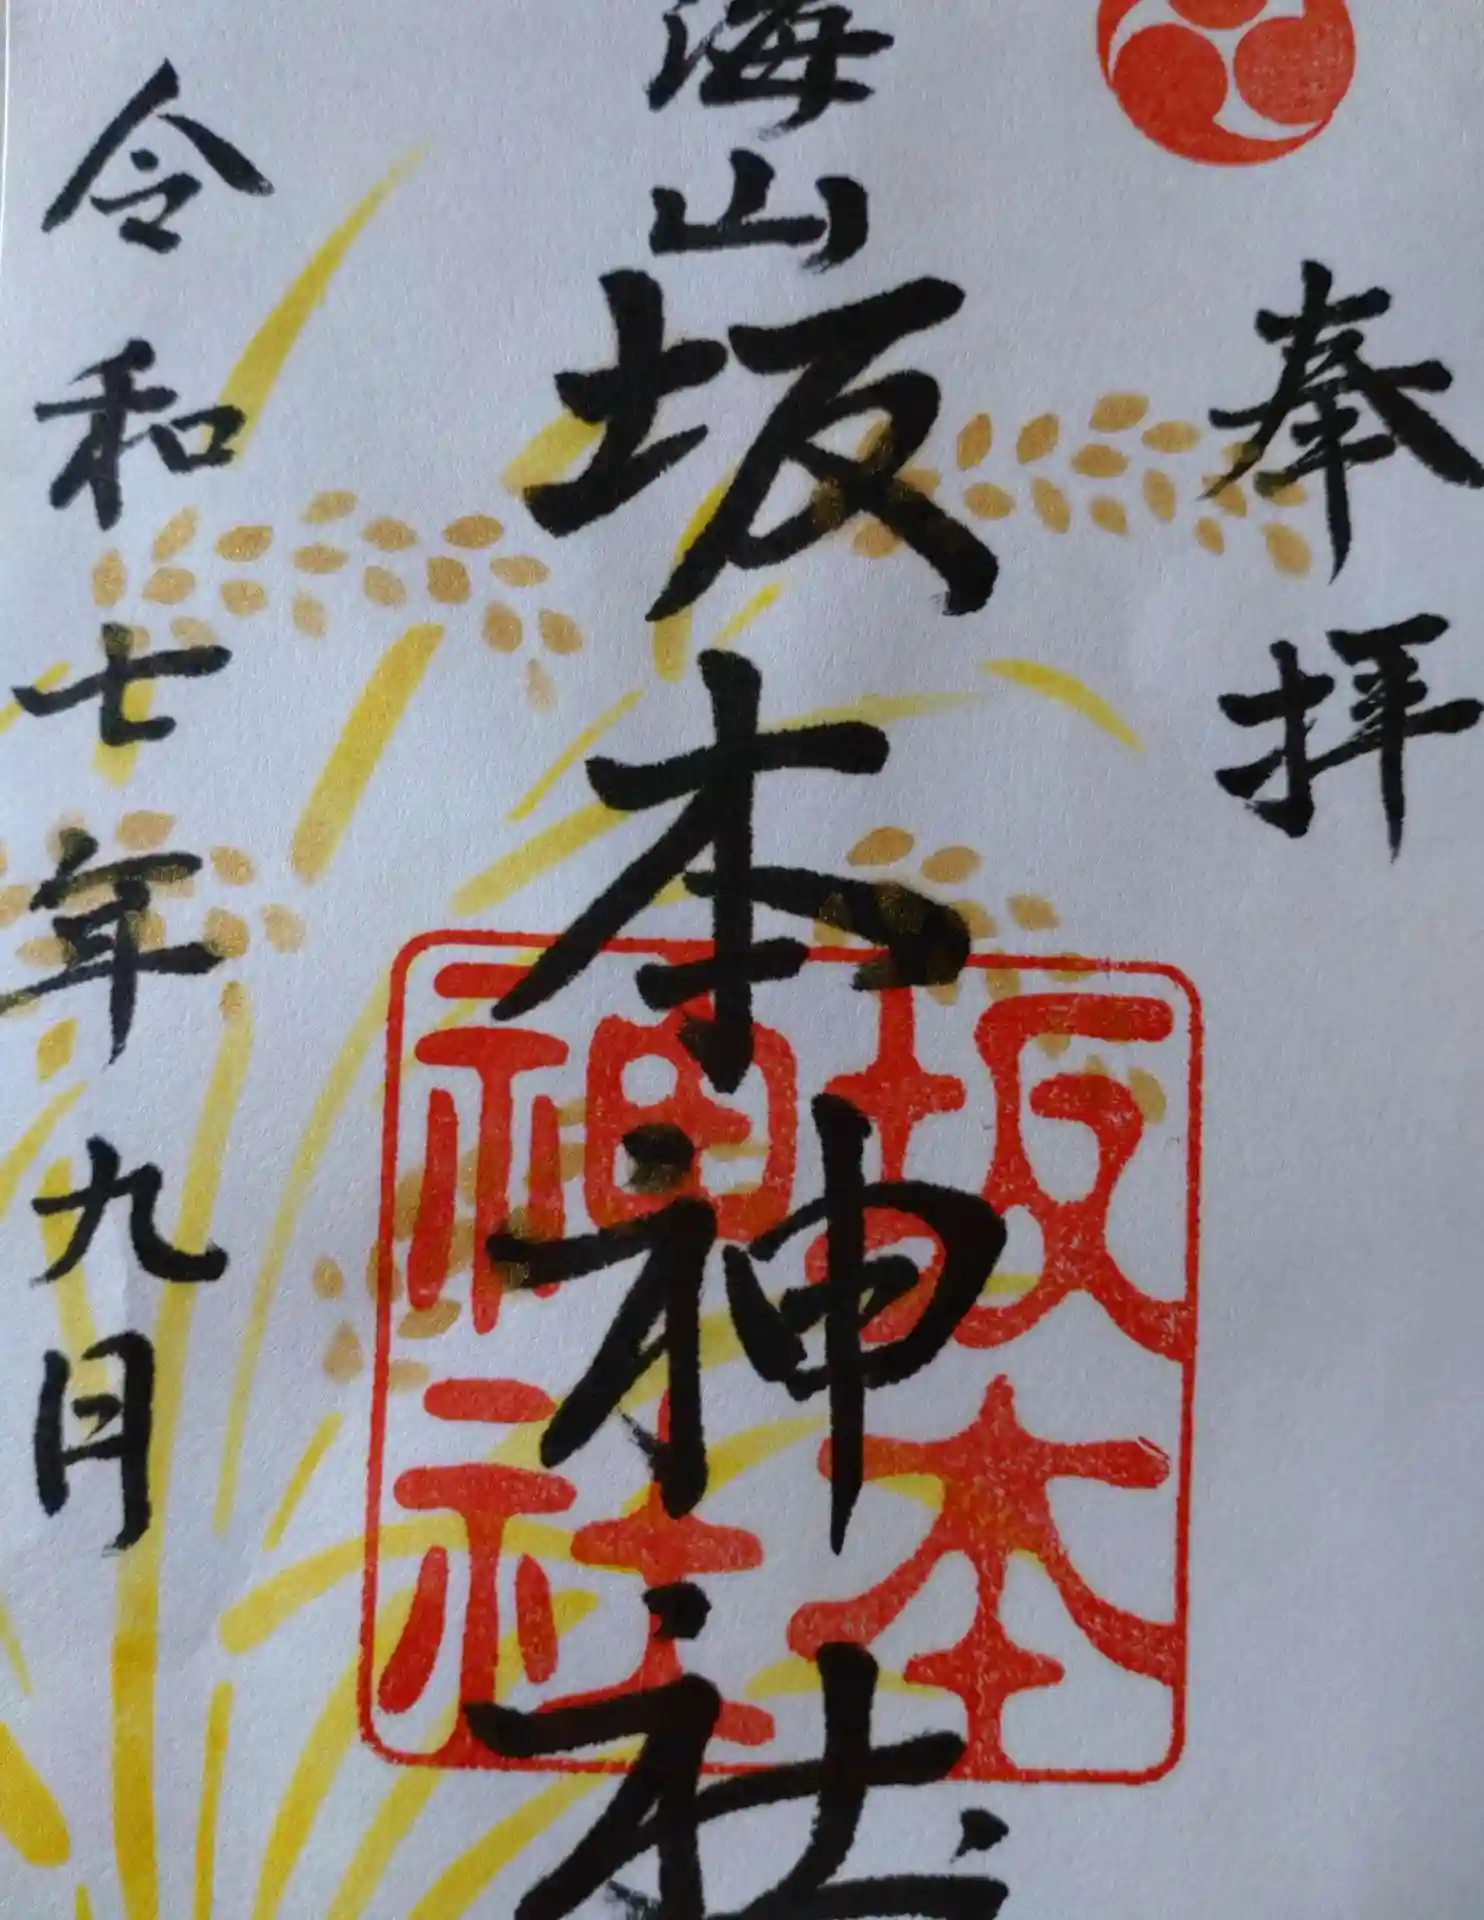 奉拝
海山
坂本神社
坂本
神社
令和七年九月